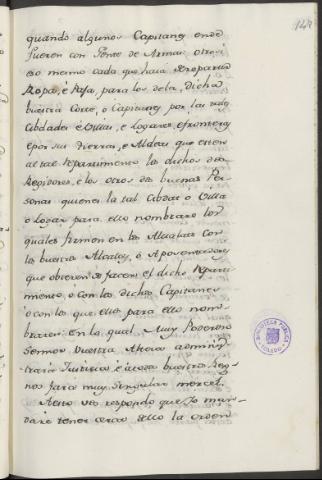 144
quando algunos Capitanes ende
fueren con Gente de Armas: otrosi
eso mesmo cada que haia de repartir
Ropa, é Paja, para los de la dicha
buestra Corte, o Capitanes por las tales
Cibdades é Villas, e logares, e fronteras
e por sus tierras, e Aldeas que esten
al tal repartimento los dichos dos
Regidores, é los otros dos buenas Per
sonas quienes la tal Cibdat o Villa
o Logar para ello nombraro los
quales firmen en los Alvalaes con
los buestros Alcaldes, ó Aposentadores
que obieren de facer el dicho repart
mento, o con los dichos Capitanes
o con los que ellos para ello nom
braren: en lo qual Muy Poderoso
Sennor Vuestra Alteza administ
trara Justicia é á todos buestros Rey
nos fara muy singular merced.
A esto vos respondo que Yo man
daré tener cerca dello la orden
BIBLIOTECA PUBLICA
TOLEDO